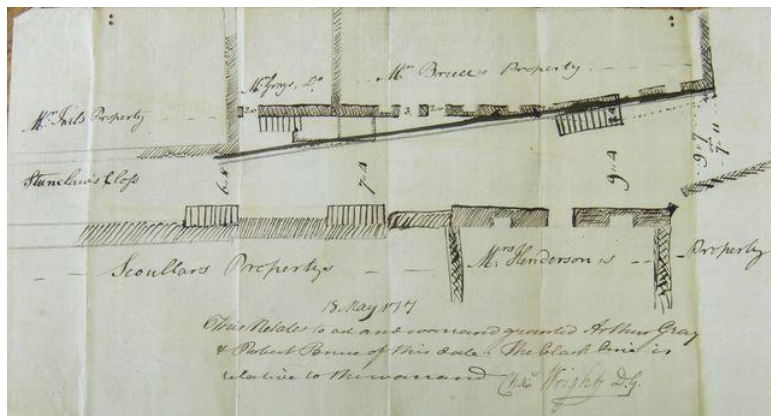 Mr. Grays Do.
Mr. Bruces Property
Mr. Tails Property
Stanelaw's Closs
6-8
7-4
9-4
9-7
7-11
Scoullars Property
Mrs. Henderson's Property
13 May 17
This Relates to ad and warrand granted Arthur Gray
& Robert Bruce of this date The black line is
relative to the warrand Chas. Wright D.G.